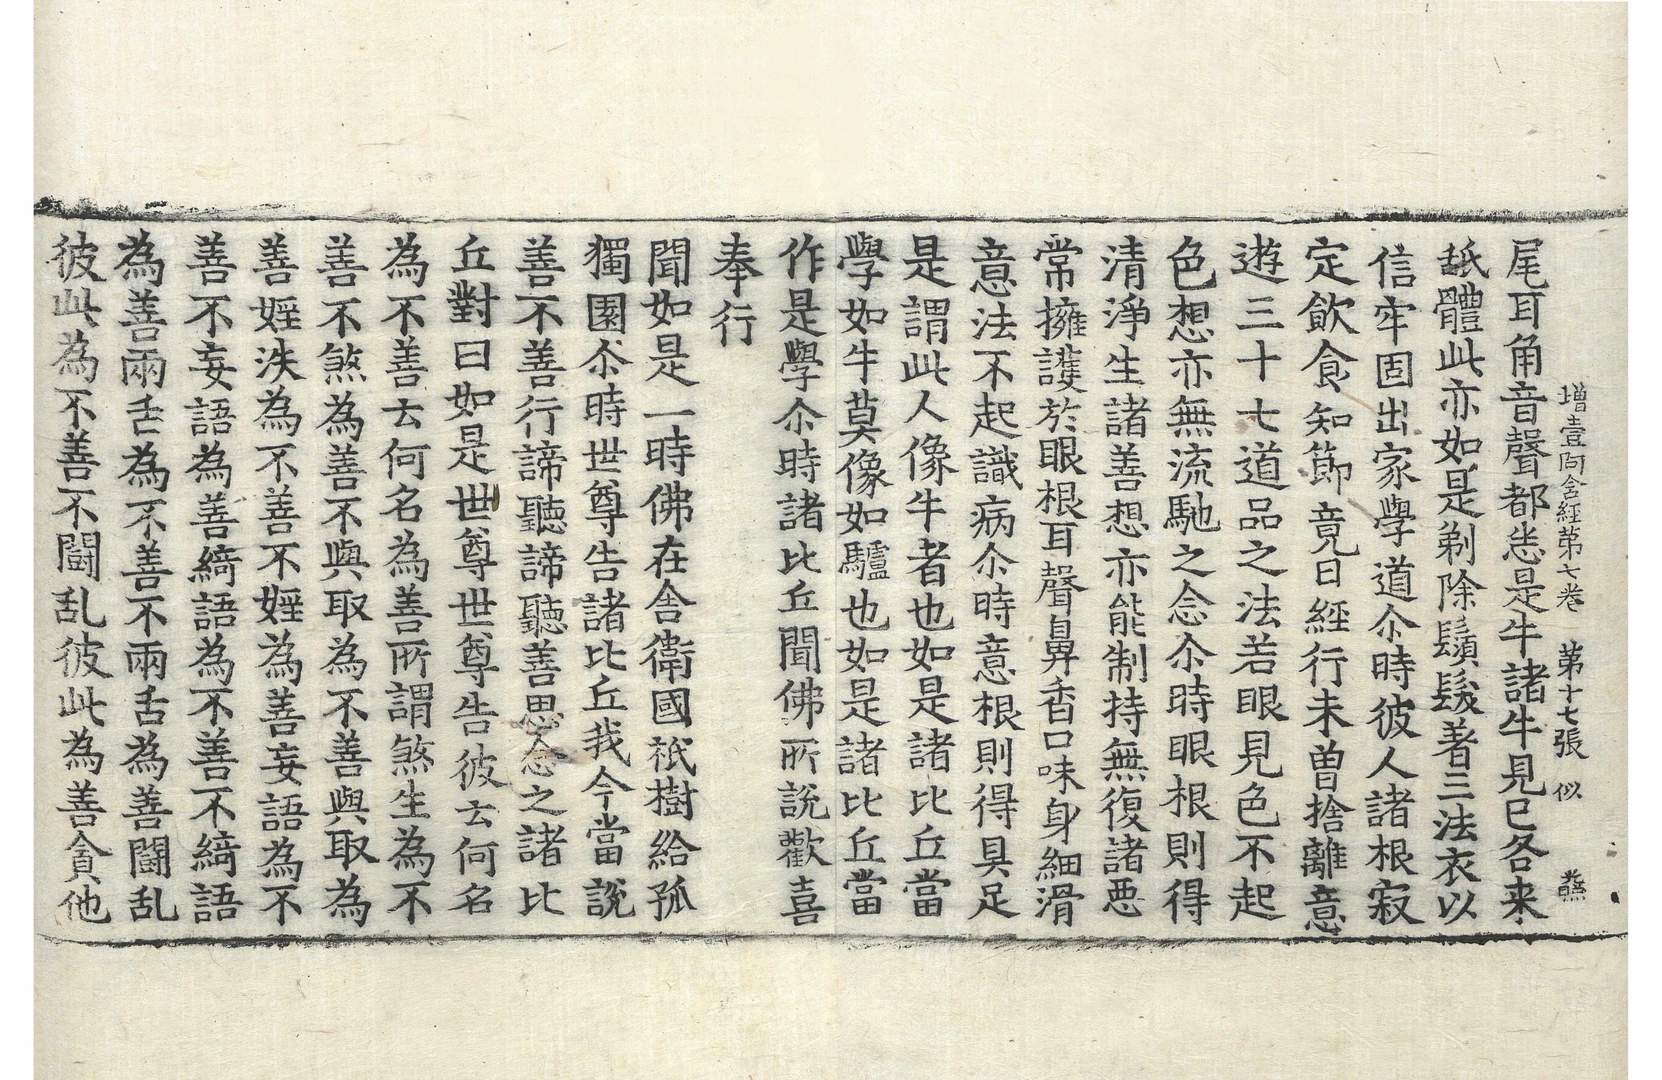 增壹阿含經第七卷 第十七張 似
尾耳角音聲都悉是牛諸牛見已各来
舐體此亦如是剃除鬚髮著三法衣以
信牢固出家學道尒時彼人諸根寂
定飲食知節竟日經行未曾捨離意
遊三十七道品之法若眼見色不起
色想亦無流馳之念尒時眼根則得
清淨生諸善想亦能制持無復諸惡
常擁護於眼根耳聲鼻香口味身細滑
意法不起識病尒時意根則得具足
是謂此人像牛者也如是諸比丘當
學如牛莫像如驢也如是諸比丘當
作是學尒時諸比丘聞佛所說歡喜
奉行
聞如是一時佛在舍衛國祇樹給孤
獨園尒時世尊告諸比丘我今當說
善不善行諦聽諦聽善思念之諸比
丘對曰如是世尊世尊告彼云何名
為不善云何名為善所謂煞生為不
善不煞為善不與取為不善與取為
善婬泆為不善不婬為善妄語為不
善不妄語為善綺語為不善不綺語
為善兩舌為不善不兩舌為善鬪乱
彼此為不善不鬪乱彼此為善貪他